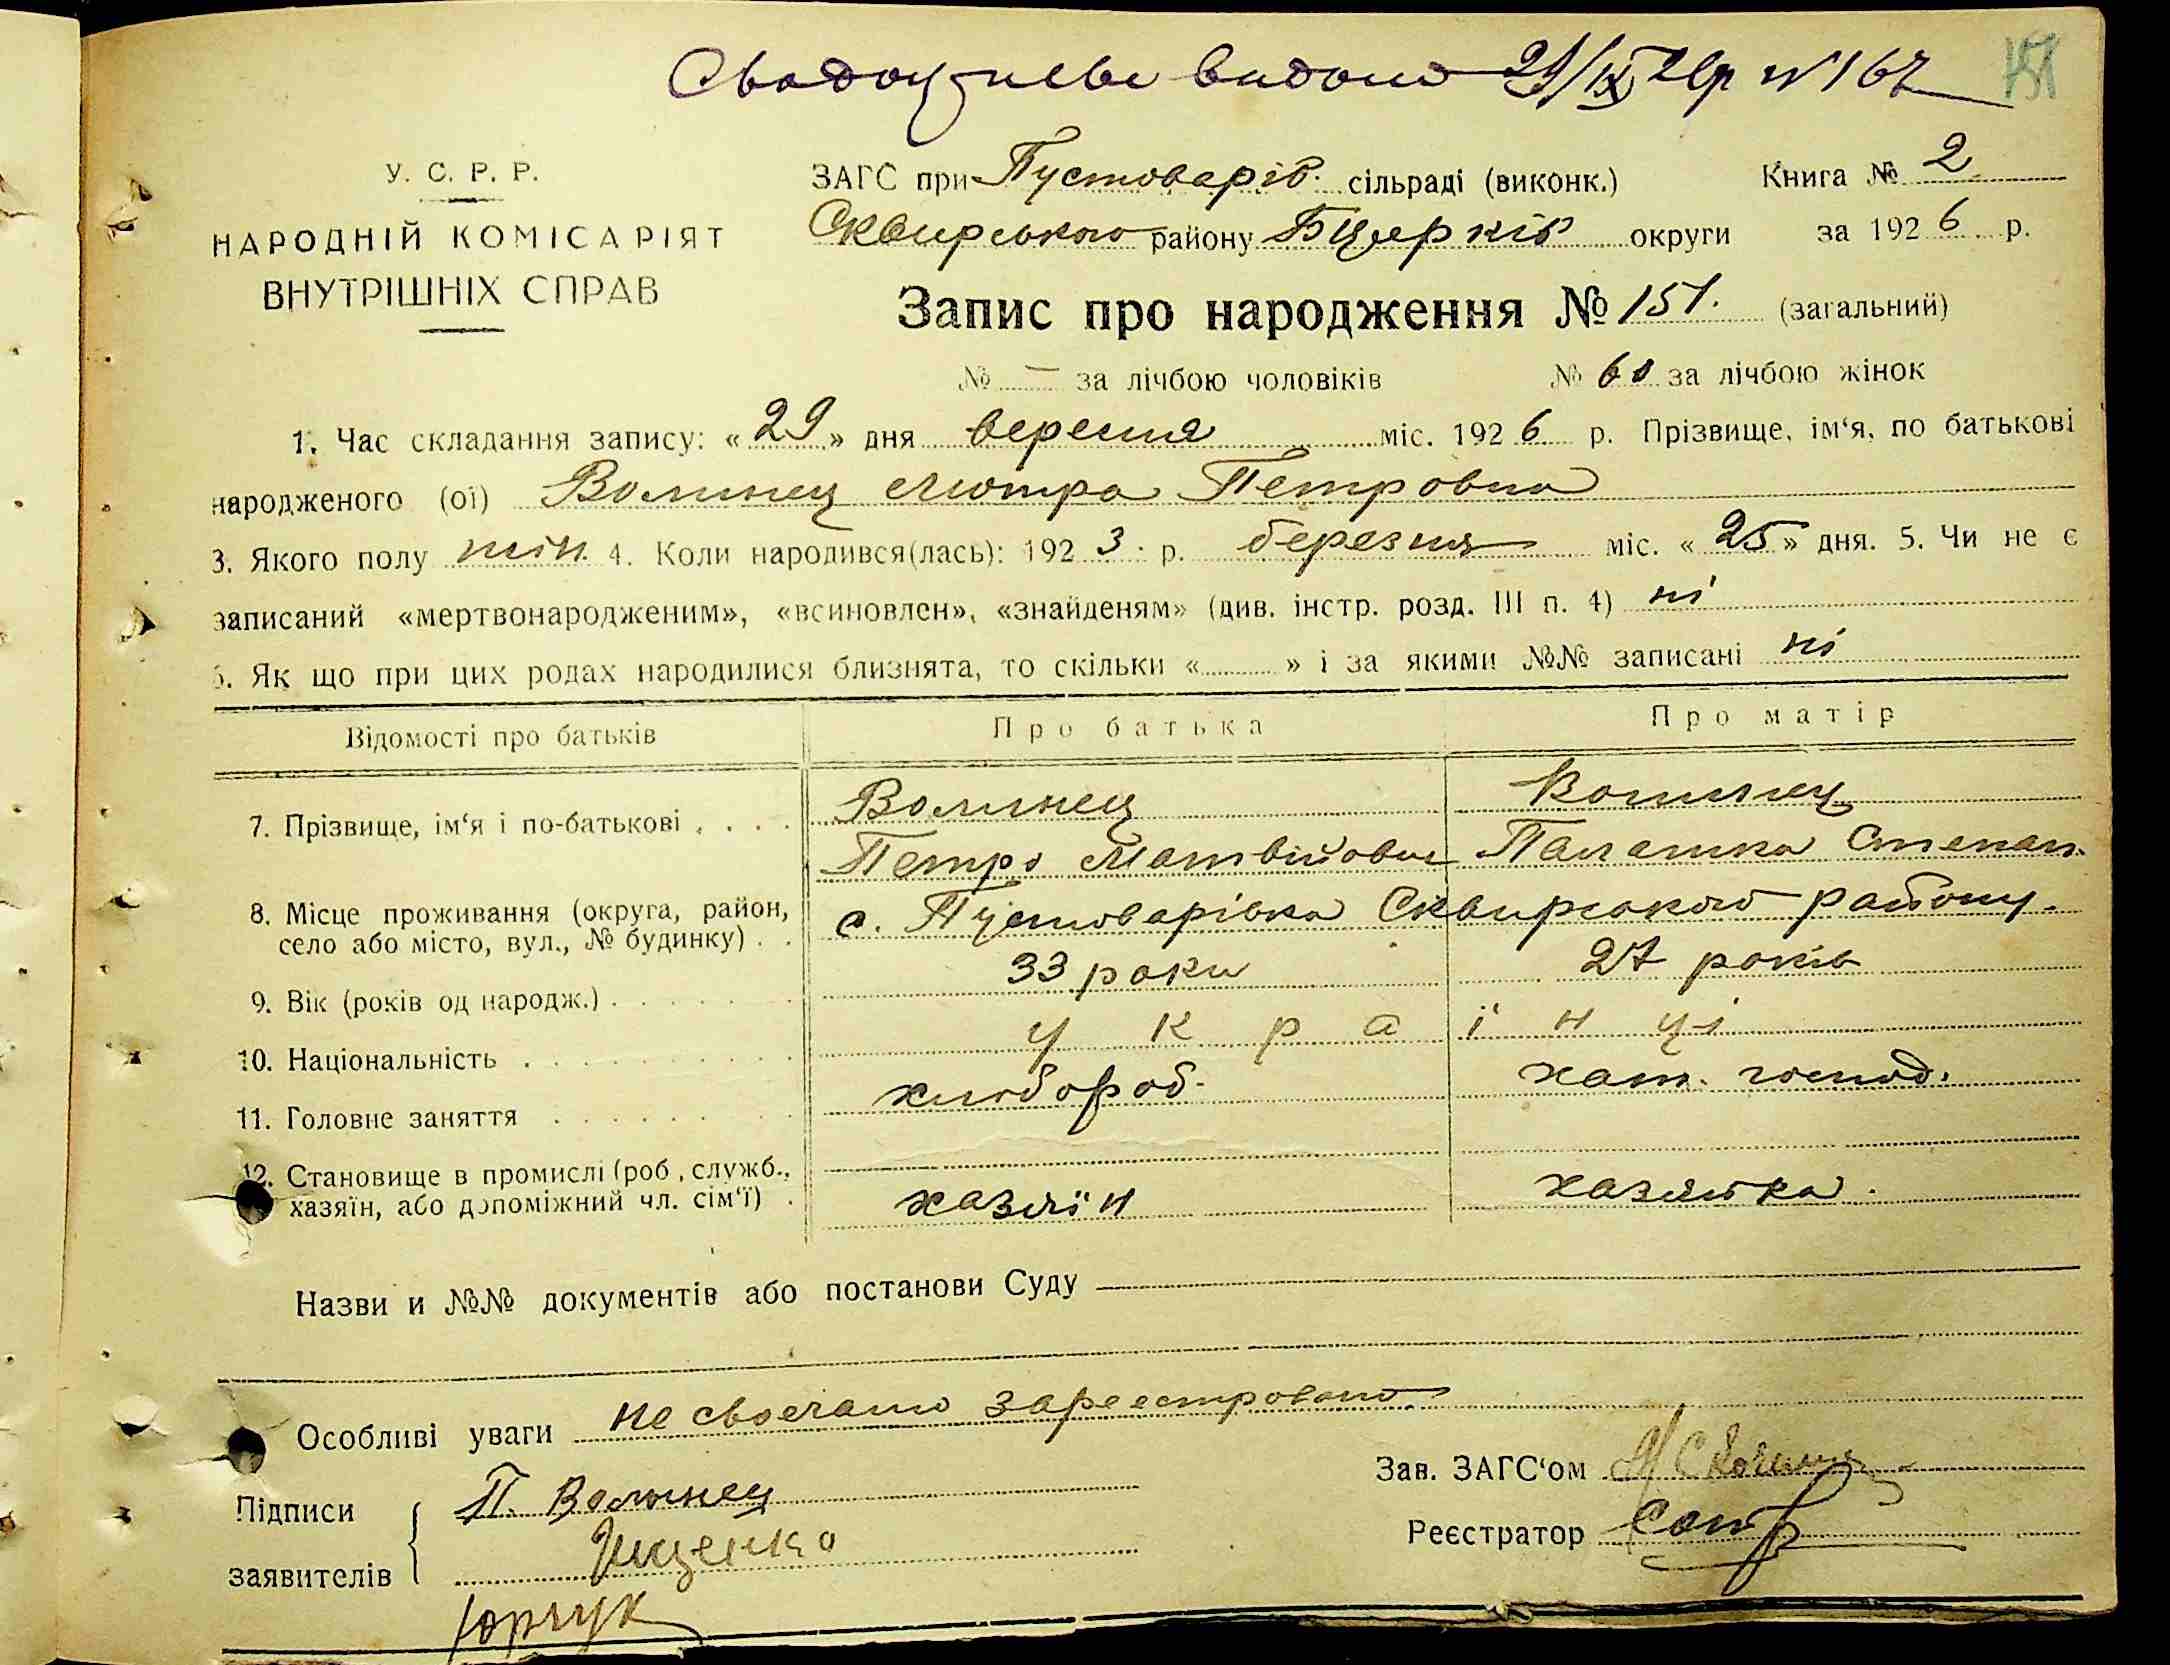 видано 29/IX 26р № 167
151
У. С. Р. Р.
НАРОДНІЙ КОМІСАРІЯТ
ВНУТРІШНІХ СПРАВ
ЗАГС при Пустоварів. сільраді (виконк.) Книга № 2
Сквирського району Бцерків округи за 1926 р.
Запис про народження № 151. (загальний)
№ — за лічбою чоловіків № 60 за лічбою жінок
1. Час складання запису: « 29 » дня вересня міс. 1926 р. Прізвище, ім‘я, по батькові
народженого (ої) Волинец Мотра Петровна
3. Якого полу жін. 4. Коли народився(лась): 1923 р. березня міс. « 25 » дня. 5. Чи не є
записаний «мертвонародженим», «всиновлен», «знайденям» (див. інстр. розд. III п. 4) ні
6. Як що при цих родах народилися близнята, то скільки « » і за якими №№ записані ні
Відомості про батьків Про батька Про матір
7. Прізвище, ім‘я і по-батькові . . . . Волинец Волинец
Петро Матвійович Палашка Степан.
8. Місце проживання (округа, район,
село або місто, вул., № будинку) . . с. Пустоварівка Сквирського району.
9. Вік (років од народж.) . . . . . . 33 роки 27 років
10. Національність . . . . . . . . . українці
11. Головне заняття . . . . . . . хлібороб. хат. господ.
12. Становище в промислі (роб., служб.,
хазяїн, або допоміжний чл. сім‘ї) . хазяїн хазяйка.
Назви и №№ документів або постанови Суду
Особливі уваги не своєчасно зареестровано.
Зав. ЗАГС‘ом
Підписи П. Волынец
Реєстратор
заявителів Іщенко
Юрчук